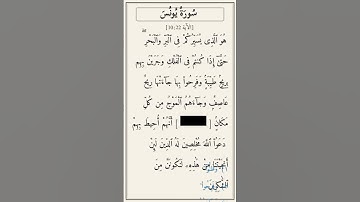 سُورَةُ يُونُسَ
[الآية 10:22]
هُوَ ٱلَّذِى يُسَيِّرُكُمْ فِى ٱلْبَرِّ وَٱلْبَحْرِ ۖ
حَتَّىٰٓ إِذَا كُنتُمْ فِى ٱلْفُلْكِ وَجَرَيْنَ بِهِم
بِرِيحٍ طَيِّبَةٍ وَفَرِحُوا۟ بِهَا جَآءَتْهَا رِيحٌ
عَاصِفٌ وَجَآءَهُمُ ٱلْمَوْجُ مِن كُلِّ
مَكَانٍ [ ] أَنَّهُمْ أُحِيطَ بِهِمْ
دَعَوُا۟ ٱللَّهَ مُخْلِصِينَ لَهُ ٱلدِّينَ لَئِنْ
أَنجَيْتَنَا مِنْ هَٰذِهِۦ لَنَكُونَنَّ مِنَ
ٱلشَّٰكِرِينَ